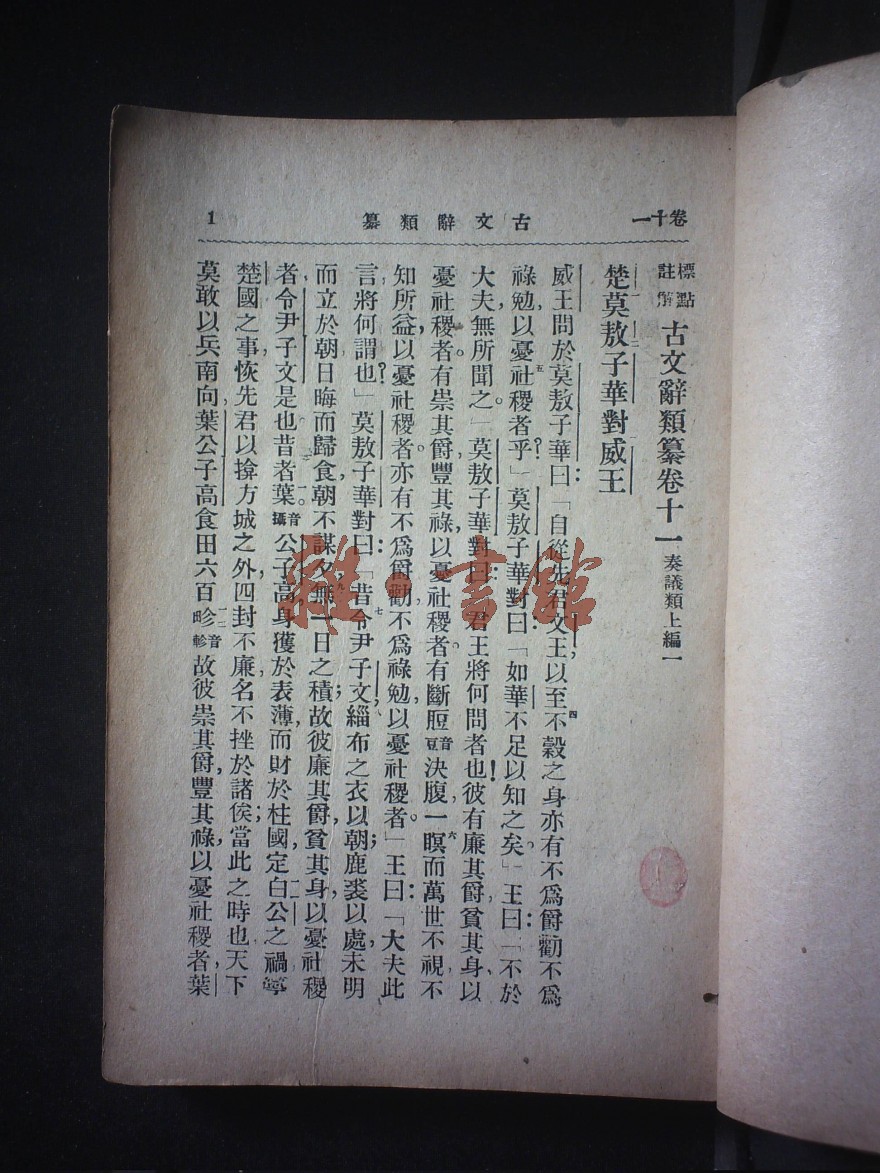 卷十一
古文辭類纂
1
標點註解古文辭類纂卷十一 奏議類上編一
楚莫敖子華對威王
威王問於莫敖子華曰：「自從先君文王，以至不穀之身，亦有不爲爵勸，不爲
祿勉，以憂社稷者乎？」莫敖子華對曰：「如華不足以知之矣。」王曰：「不於
大夫無所聞之。」莫敖子華對曰：「君王將何問者也！彼有廉其爵，貧其身，以
憂社稷者。有崇其爵，豐其祿，以憂社稷者。有斷脰音豆決腹，一瞑而萬世不視，不
知所益，以憂社稷者。亦有不爲爵勸，不爲祿勉，以憂社稷者。」王曰：「大夫此
言，將何謂也？」莫敖子華對曰：「昔令尹子文，緇布之衣以朝；鹿裘以處，未明
而立於朝，日晦而歸食，朝不謀夕，無一日之積；故彼廉其爵，貧其身，以憂社稷
者，令尹子文是也。昔者葉音攝公子高，身獲於表薄，而財於柱國，定白公之禍，寧
楚國之事，恢先君以揜方城之外，四封不廉，名不挫於諸侯；當此之時也，天下
莫敢以兵南向，葉公子高食田六百畛音軫故彼崇其爵，豐其祿，以憂社稷者，葉
雜·書館